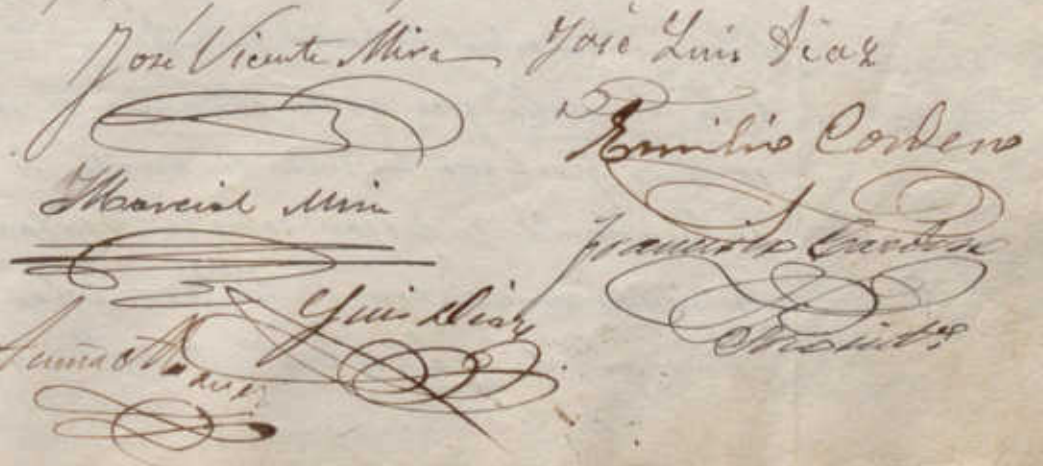 José Vicente Mira
José Luis Diaz
Emilio Cordero
Marcial Mira
Francisco
Luis Diaz